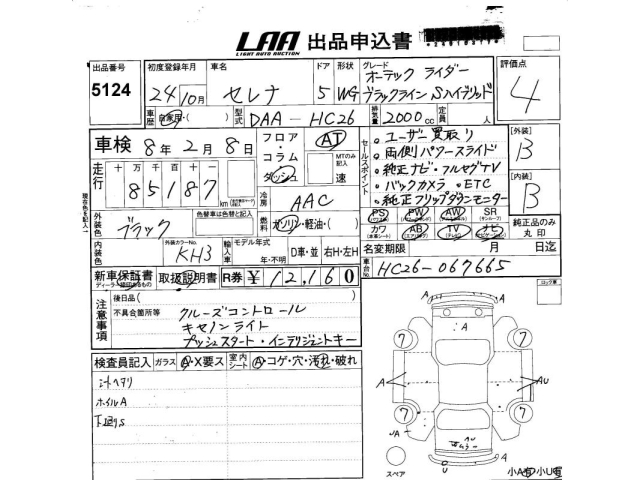 LAA 出品申込書
LIGHT AUTO AUCTION
出品番号 5124
初度登録年月 24年10月
車名 セレナ
ドア 5
形状 WG
グレード オーテック ライダー
ブラックライン Sハイブリッド
評価点 4
車歴 自家用・( )
型式 DAA-HC26
排気量 2000cc
定員 人
車検 8年2月8日
フロア・コラム・ダッシュ
AT
MTのみ記入
速
セールスポイント
・ユーザー買取り
・両側パワースライド
・純正ナビ・フルセグTV
・バックカメラ・ETC
・純正フリップダウンモニター
【外装】 B
【内装】 B
走行 十万 万 千 百 十
85187 km
冷房 AAC
現在色を記入→
外装色 ブラック
色替車は色替と記入
燃料 ガソリン・軽油・( )
PS PW AW SR
カワ AB TV ナビ
純正品のみ丸印
内装色
外装カラーNo. KH3
輸入車
モデル年式 年・不明
D車・並 右H・左H
名変期限 月 日迄
新車保証書 取扱説明書
R券 ¥12,160
車台No. HC26-067665
注意事項
後日品( )
不具合箇所等
クルーズコントロール
キセノンライト
プッシュスタート・インテリジェントキー
検査員記入
ガラス A・X要ス
室内シート A・コゲ・穴・汚れ・破れ
シートヘタリ
ホイルA
下廻りS
ロック有
A A
7 7
A A AU
7 7
JA A
AU
U
スペア
小A 小U